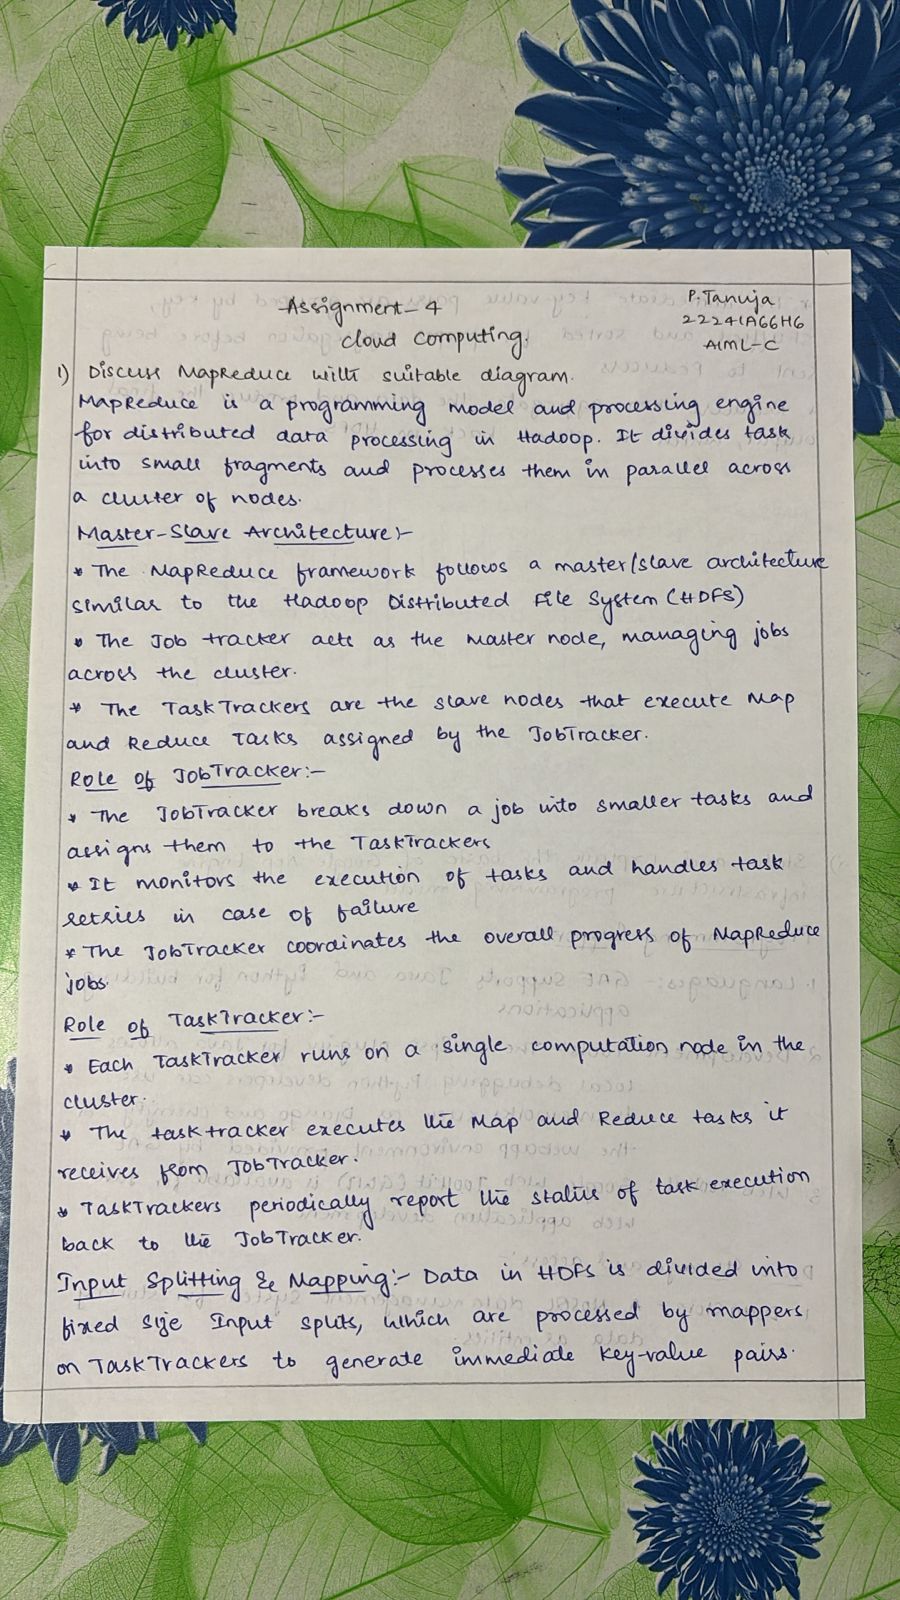 Assignment-4
P. Tanuja
22241A66H6
AIML-C
cloud computing.
1) Discuss MapReduce with suitable diagram.
MapReduce is a programming model and processing engine
for distributed data processing in Hadoop. It divides task
into small fragments and processes them in parallel across
a cluster of nodes.
Master-Slave Architecture:-
* The MapReduce framework follows a master/slave architecture
similar to the Hadoop Distributed File System (HDFS)
* The Job tracker acts as the master node, managing jobs
across the cluster.
* The TaskTrackers are the slave nodes that execute Map
and Reduce Tasks assigned by the JobTracker.
Role of JobTracker:-
* The JobTracker breaks down a job into smaller tasks and
assigns them to the TaskTrackers
* It monitors the execution of tasks and handles task
retries in case of failure
* The JobTracker coordinates the overall progress of MapReduce
jobs.
Role of TaskTracker:-
* Each TaskTracker runs on a single computation node in the
cluster.
* The task tracker executes the Map and Reduce tasks it
receives from JobTracker.
* TaskTrackers periodically report the status of task execution
back to the JobTracker.
Input Splitting & Mapping:- Data in HDFS is divided into
fixed size Input splits, which are processed by mappers
on TaskTrackers to generate immediate key-value pairs.